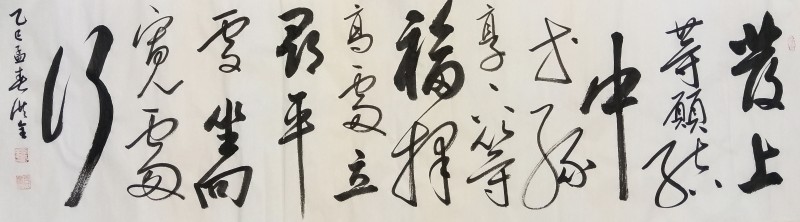 發上
等願結
中
等緣
享下等
福擇
高處立
尋平
處坐向
寬處
行
乙巳孟春